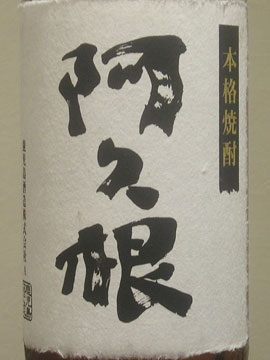 本格焼酎
阿久根